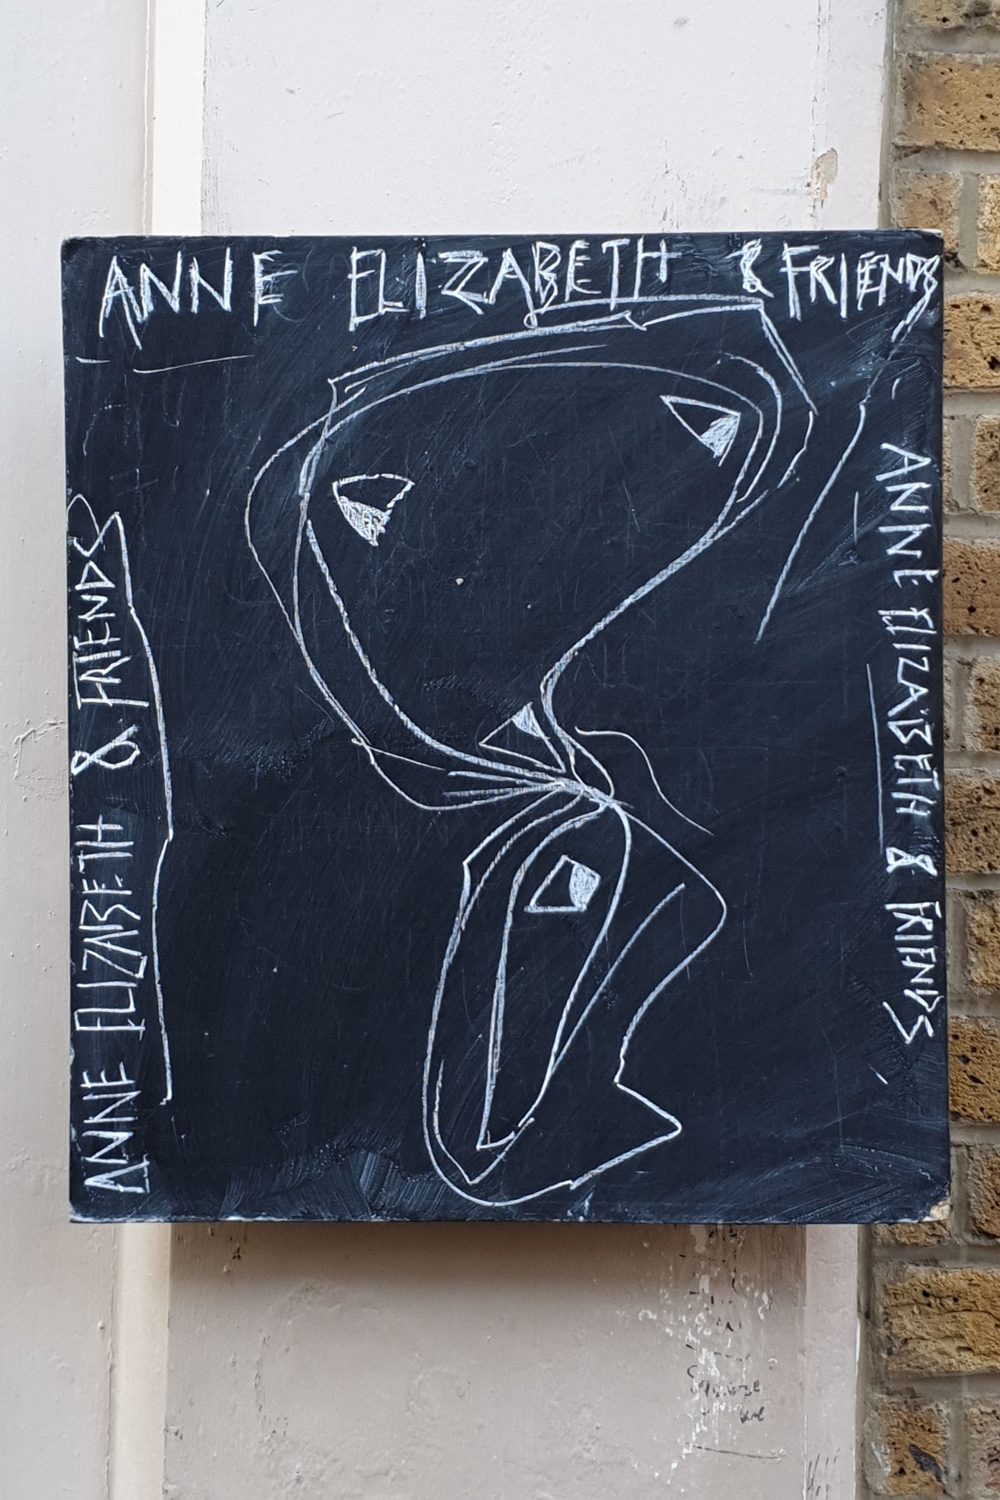 ANNE ELIZABETH & FRIENDS
ANNE ELIZABETH & FRIENDS
ANNE ELIZABETH & FRIENDS